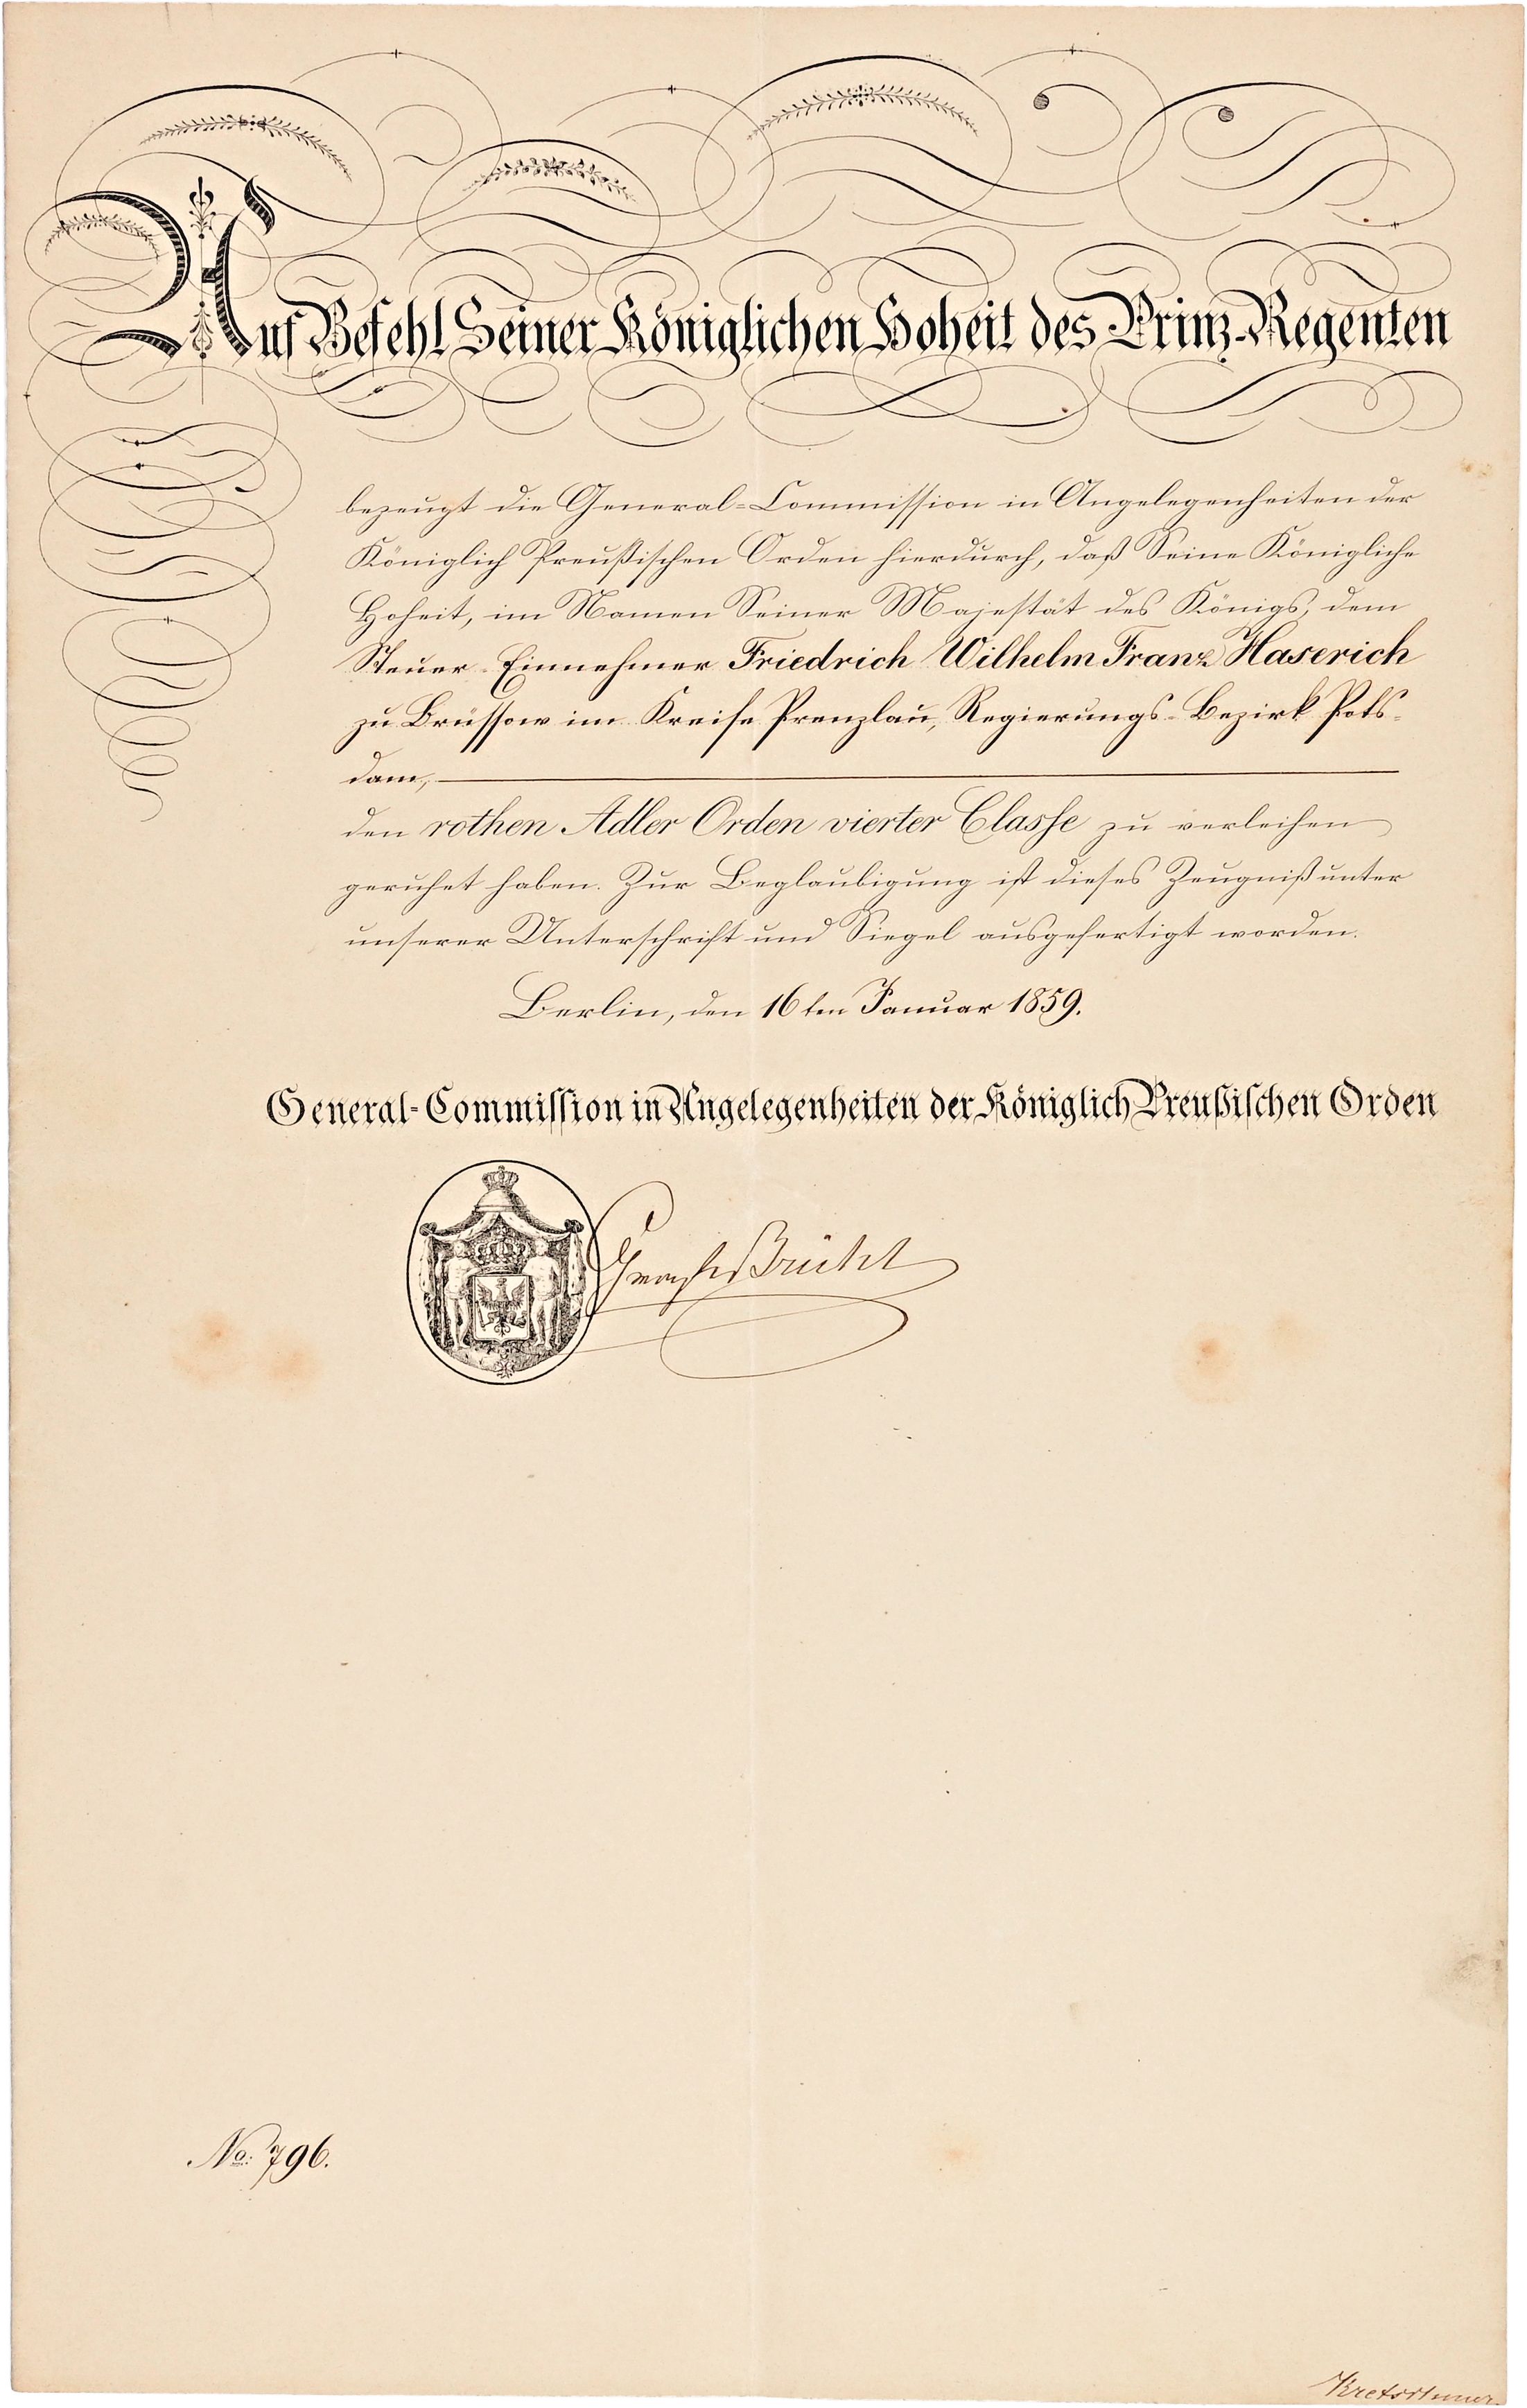 Auf Befehl Seiner Königlichen Hoheit des Prinz-Regenten
bezeugt die General-Commission in Angelegenheiten der
Königlich Preußischen Orden hierdurch, daß Seine Königliche
Hoheit, im Namen Seiner Majestät des Königs, dem
Steuer-Einnehmer Friedrich Wilhelm Franz Haserich
zu Brüssow im Kreise Prenzlau, Regierungs-Bezirk Pots-
dam,
den rothen Adler Orden vierter Classe zu verleihen
geruhet haben. Zur Beglaubigung ist dieses Zeugniß unter
unserer Unterschrift und Siegel ausgefertigt worden.
Berlin, den 16ten Januar 1859.
General-Commission in Angelegenheiten der Königlich Preußischen Orden
Brühl
No: 796.